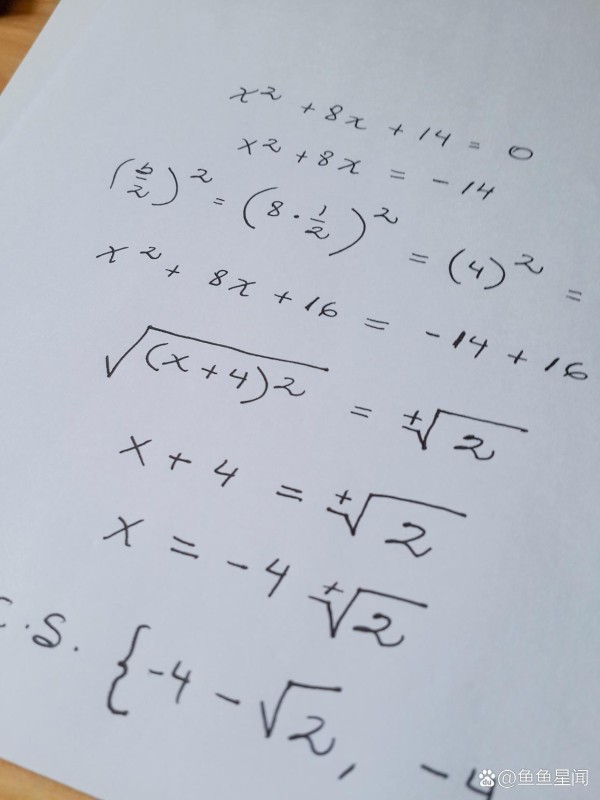 x² + 8x + 14 = 0
x² + 8x = -14
(b/2)² = (8 · 1/2)² = (4)² =
x² + 8x + 16 = -14 + 16
√(x+4)² = ±√2
x + 4 = ±√2
x = -4 ±√2
C.S. {-4 - √2, -4
@鱼鱼星闻